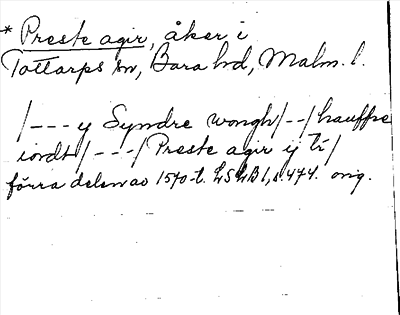 * Preste agir, åker i
Tottarps sn, Bara hd, Malm. l.
/--- y Syndre wongh/--/hauffue
iordt/---/Preste agir ij ti/
förra delen av 1570-t. LSLB1, s. 474. orig.